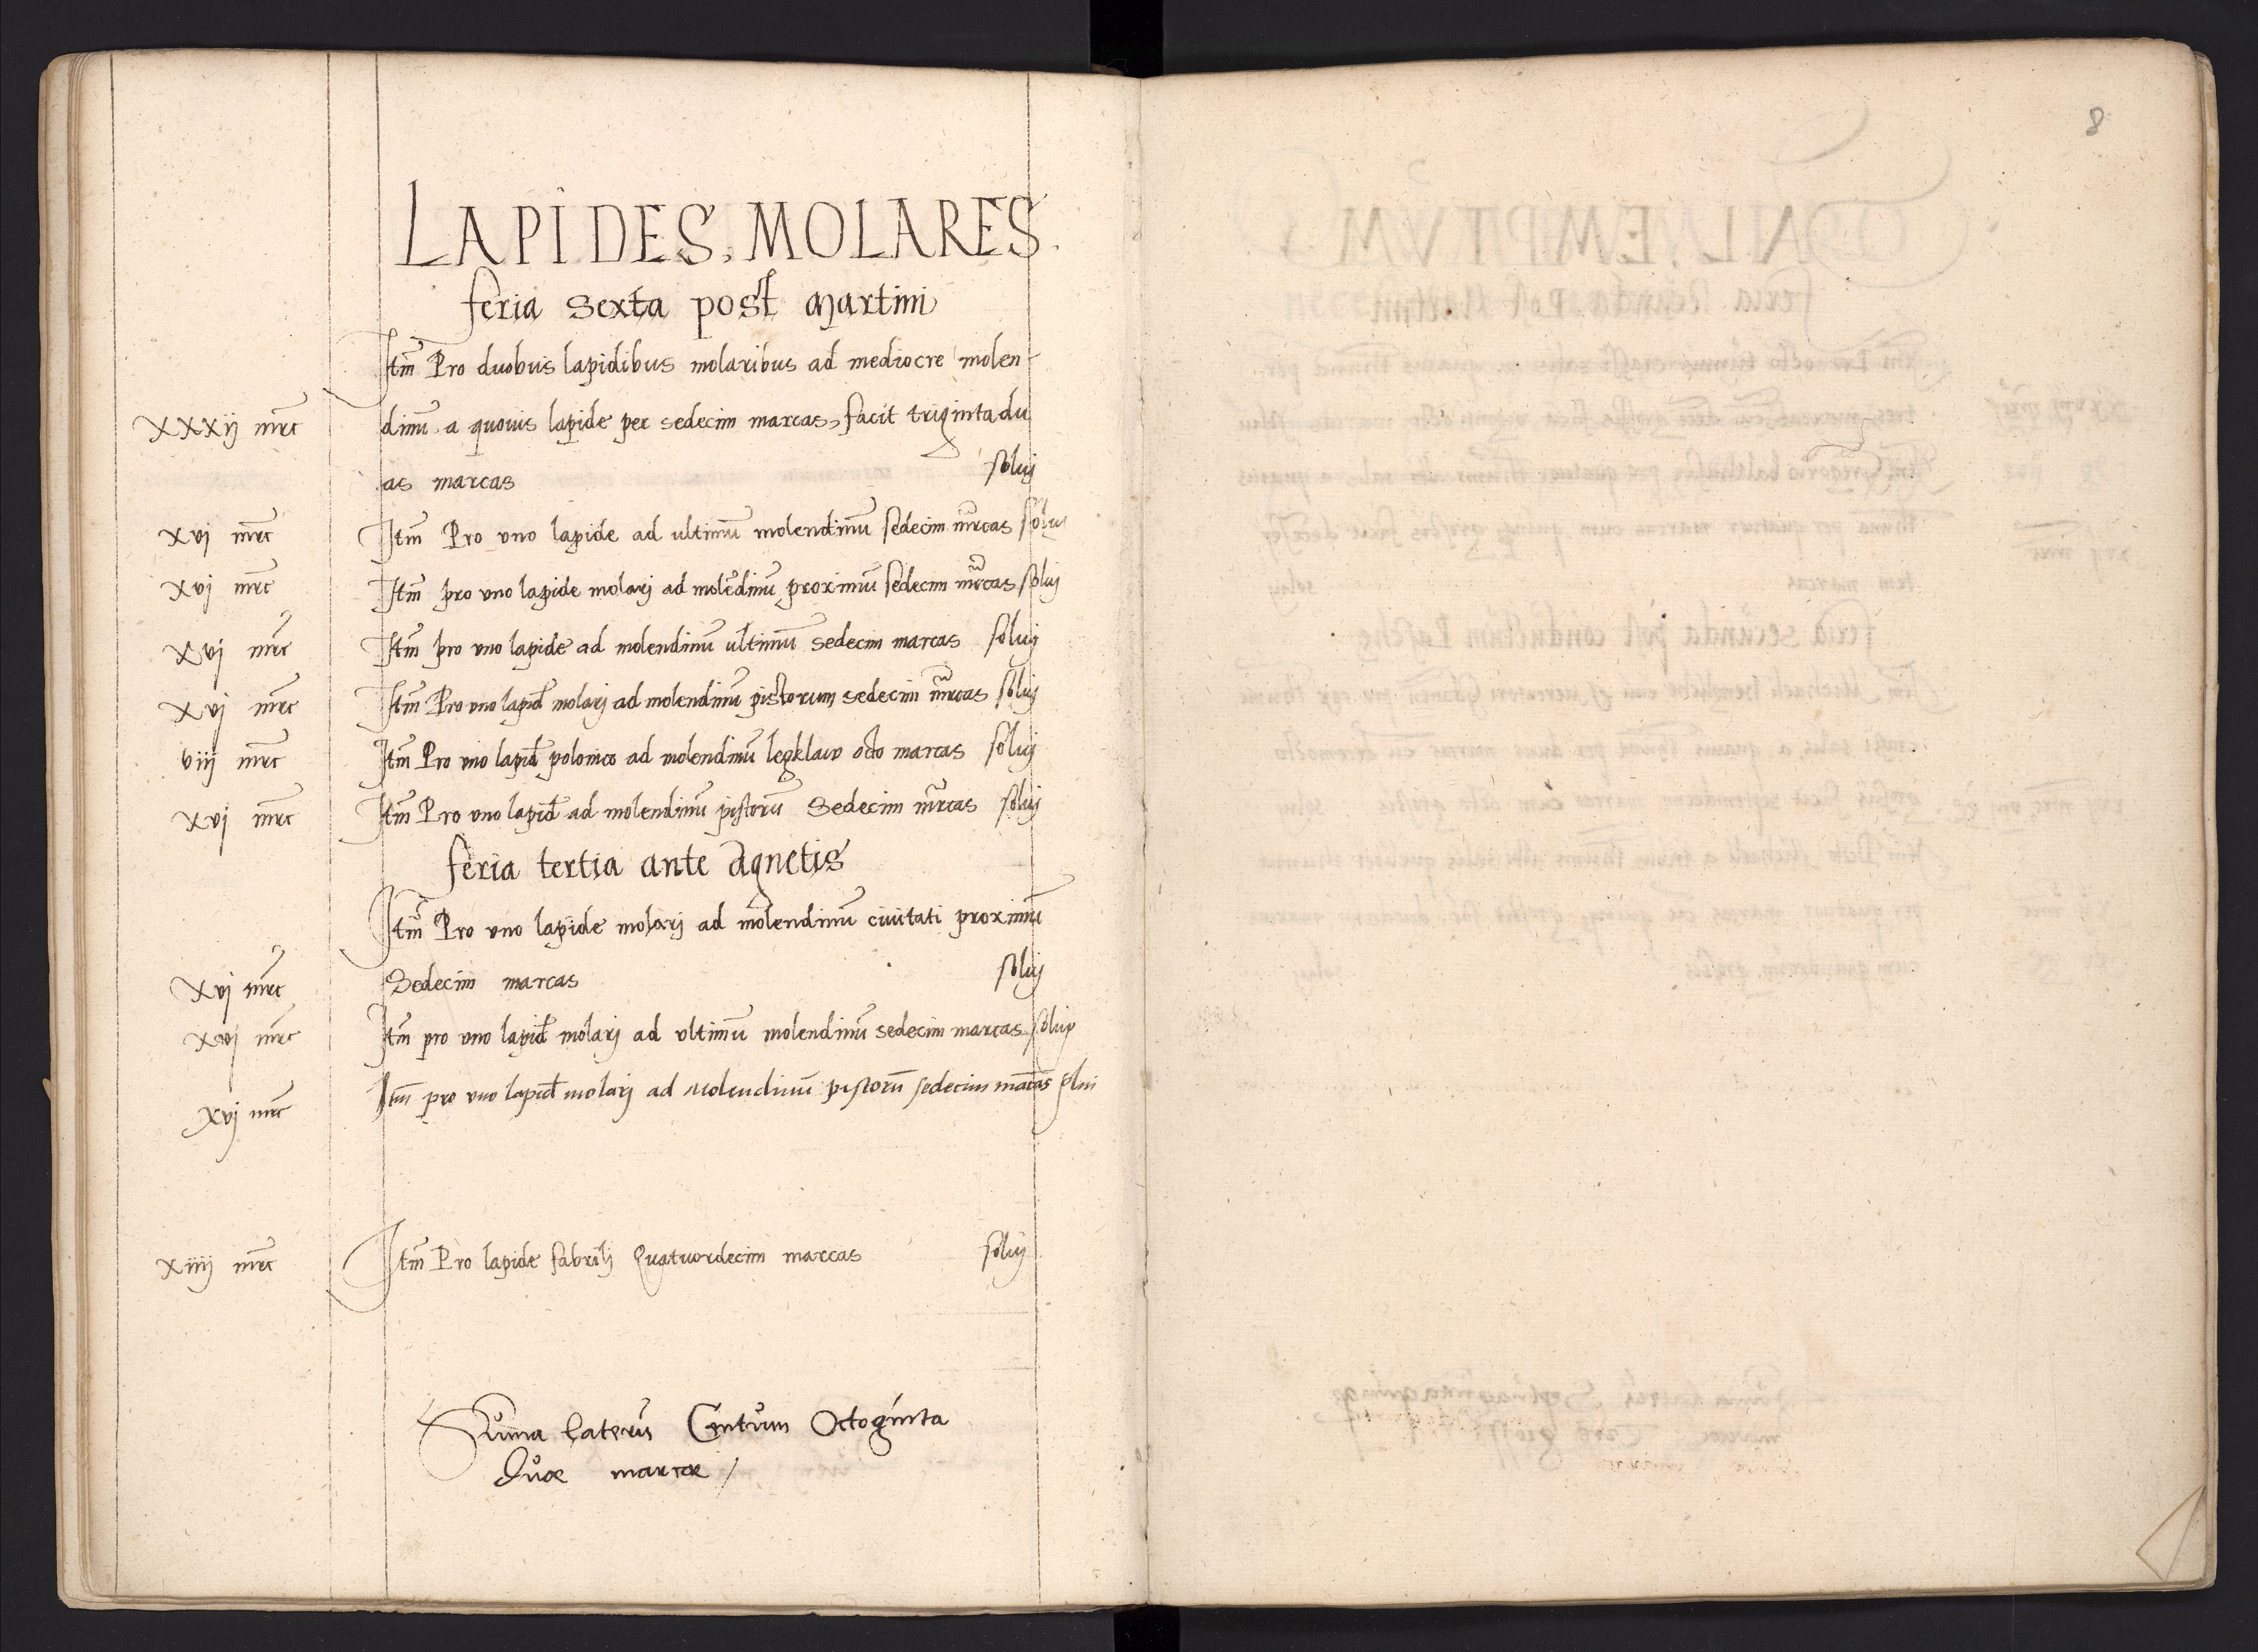 LAPIDES, MOLARES
feria sexta post Martini
Itm̄ Pro duobus lapidibus molaribus ad mediocre molen-
XXXij mrc dinū a quovis lapide per sedecim marcas, facit trigintadu
as marcas soluj
xvj mrc Itm̄ Pro uno lapide ad ultimū molendinū sedecim mrcas soluj
xvj mrc Itm̄ pro uno lapide molarj ad molēdinū proximū sedecim mrcas soluj
xvj mrc Itm̄ pro uno lapide ad molendinū ultimū sedecim marcas soluj
xvj mrc Itm̄ Pro uno lapid molarj ad molendinū pistorum sedecim mrcas soluj
viij mrc Itm̄ Pro uno lapid polonico ad molendinū legklaw octo marcas soluj
xvj mrc Itm̄ Pro uno lapid ad molendinū pistorū Sedecim mrcas soluj
feria tertia ante Agnetis
Itm̄ Pro uno lapide molarj ad molendinū civitati proximū
xvj mrc Sedecim marcas soluj
xvj mrc Itm̄ pro uno lapid molarj ad ultimū molendinū sedecim marcas soluj
xvj mrc Itm̄ pro uno lapid molarj ad Molendinū pistorū sedecim marcas solui
xiiij mrc Itm̄ Pro lapide fabrilj Quatuordecim marcas soluj
Suma Lateris Centum Octoginta
Duae marcae /
8